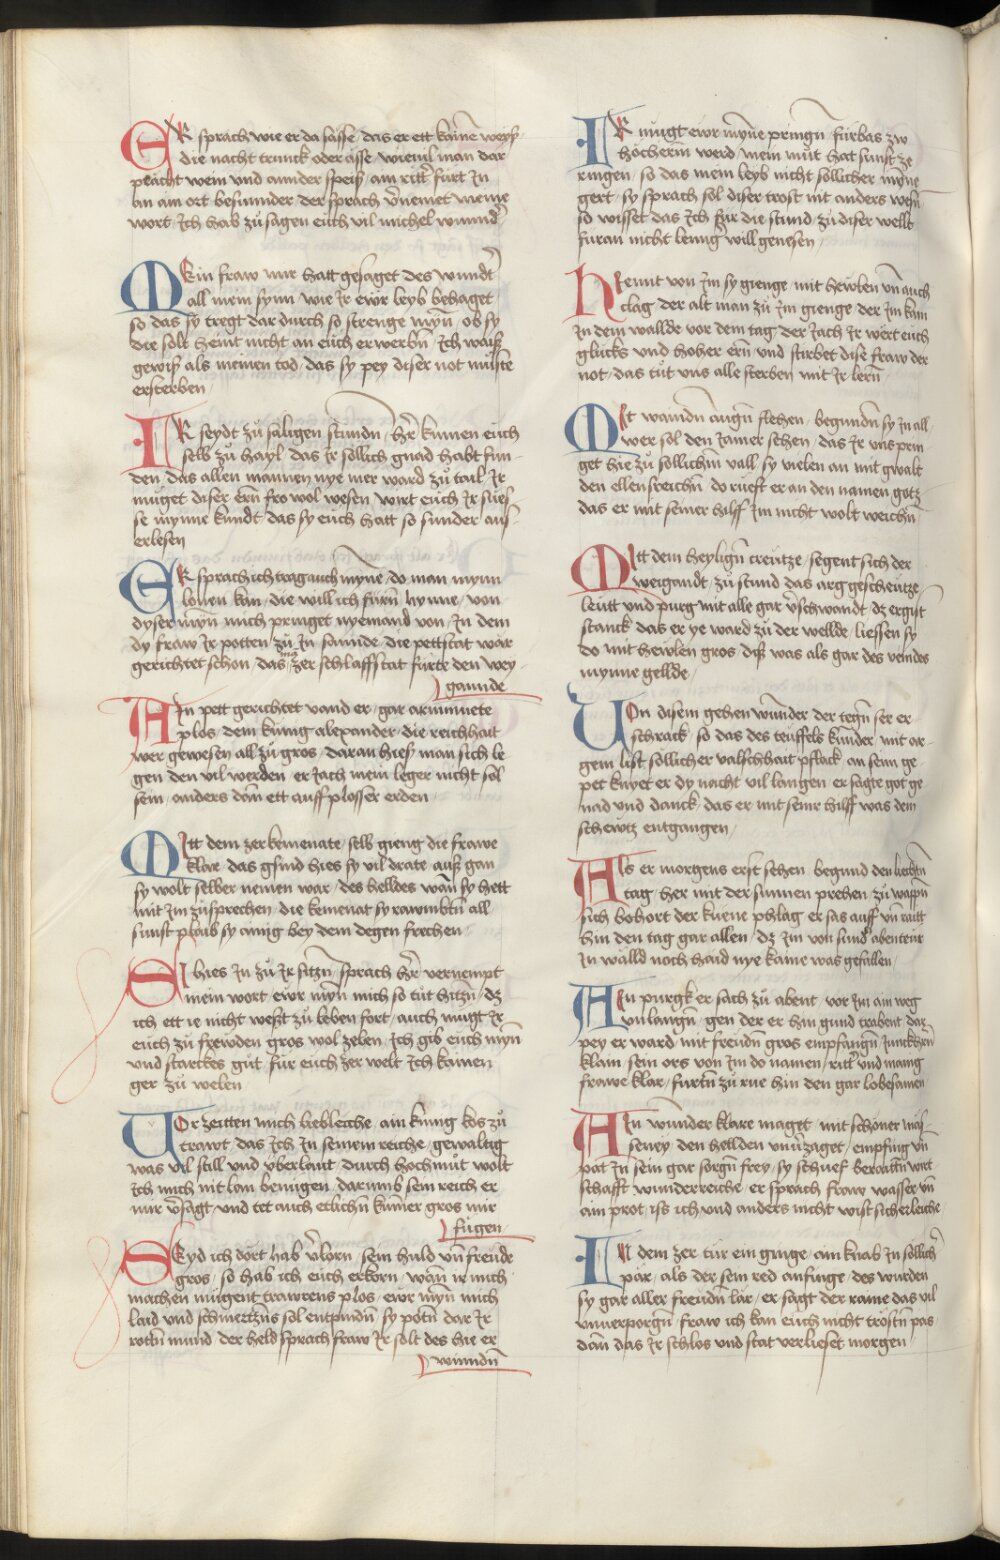 ER sprach wie er da sässe das er ett kainē weys
die nacht trunck oder ässe wieuil man dar
pracht wein vnd annder speis ain rittʼ fürt In
an ain ort besunnder der sprach vˀnemet meine
wort Ich hab zů sagen euch vil michel wunndʼ
MEin fraw mir hatt gesaget des wundʼt
all mein synn wie Ir ewr leyb behaget
so das sy tregt dar durch so strenge myn̄ ob sy
die solt heint nicht an euch erwerbn̄ Ich waiss
gewiss als meinen tod das sy pey diser not müste
ersterben
IR seydt zů säligen stundn̄ hr̄ künnen euch
selb zů hayl das Ir sollich gnad habt fun
den das allen mannen nye mer ward zů tail Ir
müget diser ern̄ fro wol wesen wirt euch Ir süess
se mynne kundt das sy euch hatt so sunder aus
erlesen
ER sprach ich trag auch mynē do man mynn
louen kan die will ich fürn̄ hynne von
dyser myn̄ mich pringet nyemand von in dem
dy fraw Ir potten zů In sannde die pettstat war
gerichtet schon das zer schlaffstat fürte den wey
gannde
AIn pett gerichtet vand er gar arminnete
plos dem künig alexander die reichhait
wer gewesen all zů gros daran hies man sich le
gen den vil werden er Iach mein leger nicht sol
sein anders dan̄ ett auff plosser erden
MItt dem zer kemenate selb gieng die frawe
klare das gsind hies sy vil drate auss gan
sy wolt selber nemen war des helldes wan̄ sy hett
mit Im zůsprechen die kemenat sy rawmbtn̄ all
sunst plaib sy ainig bey dem degen frechen
SI hies In zů Ir sitzn̄ sprach hr̄ vernempt
mein wort ewr myn̄ mich so tüt hitzn̄ dz
ich ett ie nicht west zů leben fort auch mugt Ir
euch zů frewden gros wol zelen Ich gib euch myn̄
vnd starckes gůt für euch zer welt Ich kainen
ger zů welen
VOr zeitten mich liebleiche ain künig kos zů
trawt das Ich In seinem reiche gewaltig
was vil still vnd überlaut durch hochmůt wolt
Ich mich nit lan benügen darumb sein reich er
mir vˀsagt vnd tet auch etlichn̄ kumer gros mir
fügen
SEyd ich dort hab vˀlorn sein huld vn̄ freude
gros so hab ich euch erkorn wan̄ ir mich
machen mügent trawrens plos ewr myn̄ mich
laid vnd schmertzn̄s sol entpindn̄ sy potn̄ dar Ir
rotn̄ mund der held sprach fraw Ir solt des hie er
winndn̄
IR mügt ewr myne pringn̄ fürbas zw
höcherm werd mein můt hat sunst ze
ringen so das mein leyb nicht sollicher myne
gert sy sprach sol diser trost mit anders wesn̄
so wisset das Ich für die stund zů diser wellt
füran nicht lenngʼ will genesen
HIennt von Im sy gienge mit hewlen vn̄ auch
clag der alt man zů Im gienge der Im kam
In dem wallde vor dem tag der Iach Ir wert euch
glücks vnd hoher ern̄ vnd stirbet dise fraw der
not das tüt vns alle sterben mit Ir lern̄
MIt waindn̄ augn̄ flehen begundn̄ sy In all
wer sol den Iamer sehen das Ir vns prin
get hie zů sollichm̄ vall sy vielen an mit gwalt
den ellensreichn̄ do rüeft er an den namen gotz
das er mit seiner hilff Im nicht wolt weichn̄
MItt dem heylign̄ creutze segent sich der
weigandt zů stund das arg gescheutze
leutt vnd purg mit alle gar vˀschwandt dz ergist
stanck das er ye ward zů der wellde liessen sy
do mit hewlen gros diss was als gar des veindes
mynne gellde
VOn disem gehen wunder der tegn̄ ser er
schrack so das des teuffels kunder mit ar
gem list sollicher valschhait pflack an seim ge
pet knyet er dy nacht vil langen er sagte got ge
nad vnd danck das er mit seinr hilff was dem
schewtz entgangen
ALs er morgens erst sehen begund den liechtn̄
tag her mit der sunnen prehen zů wappn̄
sich bohort der küene phlag er sas auff vn̄ raitt
hin den tag gar allen dz Im von sund abenteur
In walld noch haid nye kaine was gefallen
AIn purgk er sach zů abent vor Im am weg
vn̄langn̄ gen der er hin gund trabent dar
pey er ward mit freudn̄ gros empfangn̄ Junckhrn̄
klain sein ors von Im do namen rittʼ vnd manig
frawe klar fürtn̄ zů rue hin den gar lobesamen
AIn wunder klare maget mit schöner mäs
seney den hellden vnuˀzaget empfing vn̄
pat In sein gar sorgn̄ frey sy schuef beraittn̄ wirt
schafft wunderreiche er sprach fraw wasser vn̄
ain prot iss ich vnd anders nicht wist sicherleiche
IN dem zer tür ein ginge ain knab In sollichʼ
pär als der sein red anfinge des wurden
sy gar aller freudn̄ lär er sagt der raine das vil
vnuerporgn̄ fraw ich kan euch nicht tröstn̄ pas
dan̄ das Ir schlos vnd stat verlieset morgen